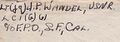 Lt(jg) J.P. WANDEL, USNR
LCI(G)
℅ F.P.O., S.F., CAL.